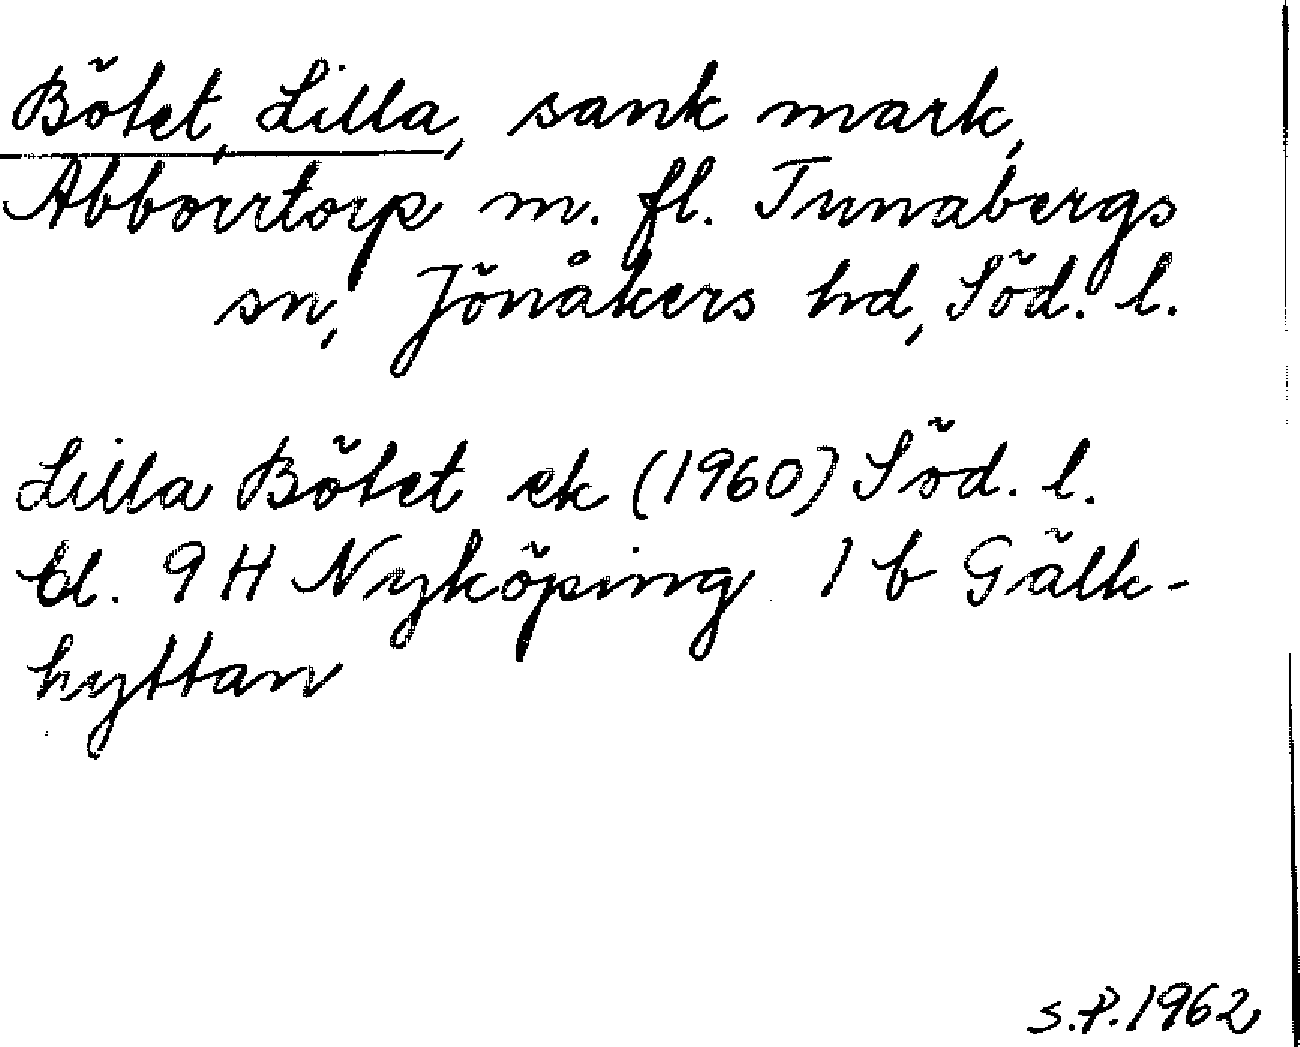 Bötet, Lilla, sank mark,
Abborrtorp m. fl. Tunabergs
sn, Jönåkers hd, Söd. l.
Lilla Bötet ek (1960) Söd. l.
Bl. 9 H Nyköping 1 b Gälk-
hyttan
S.P. 1962